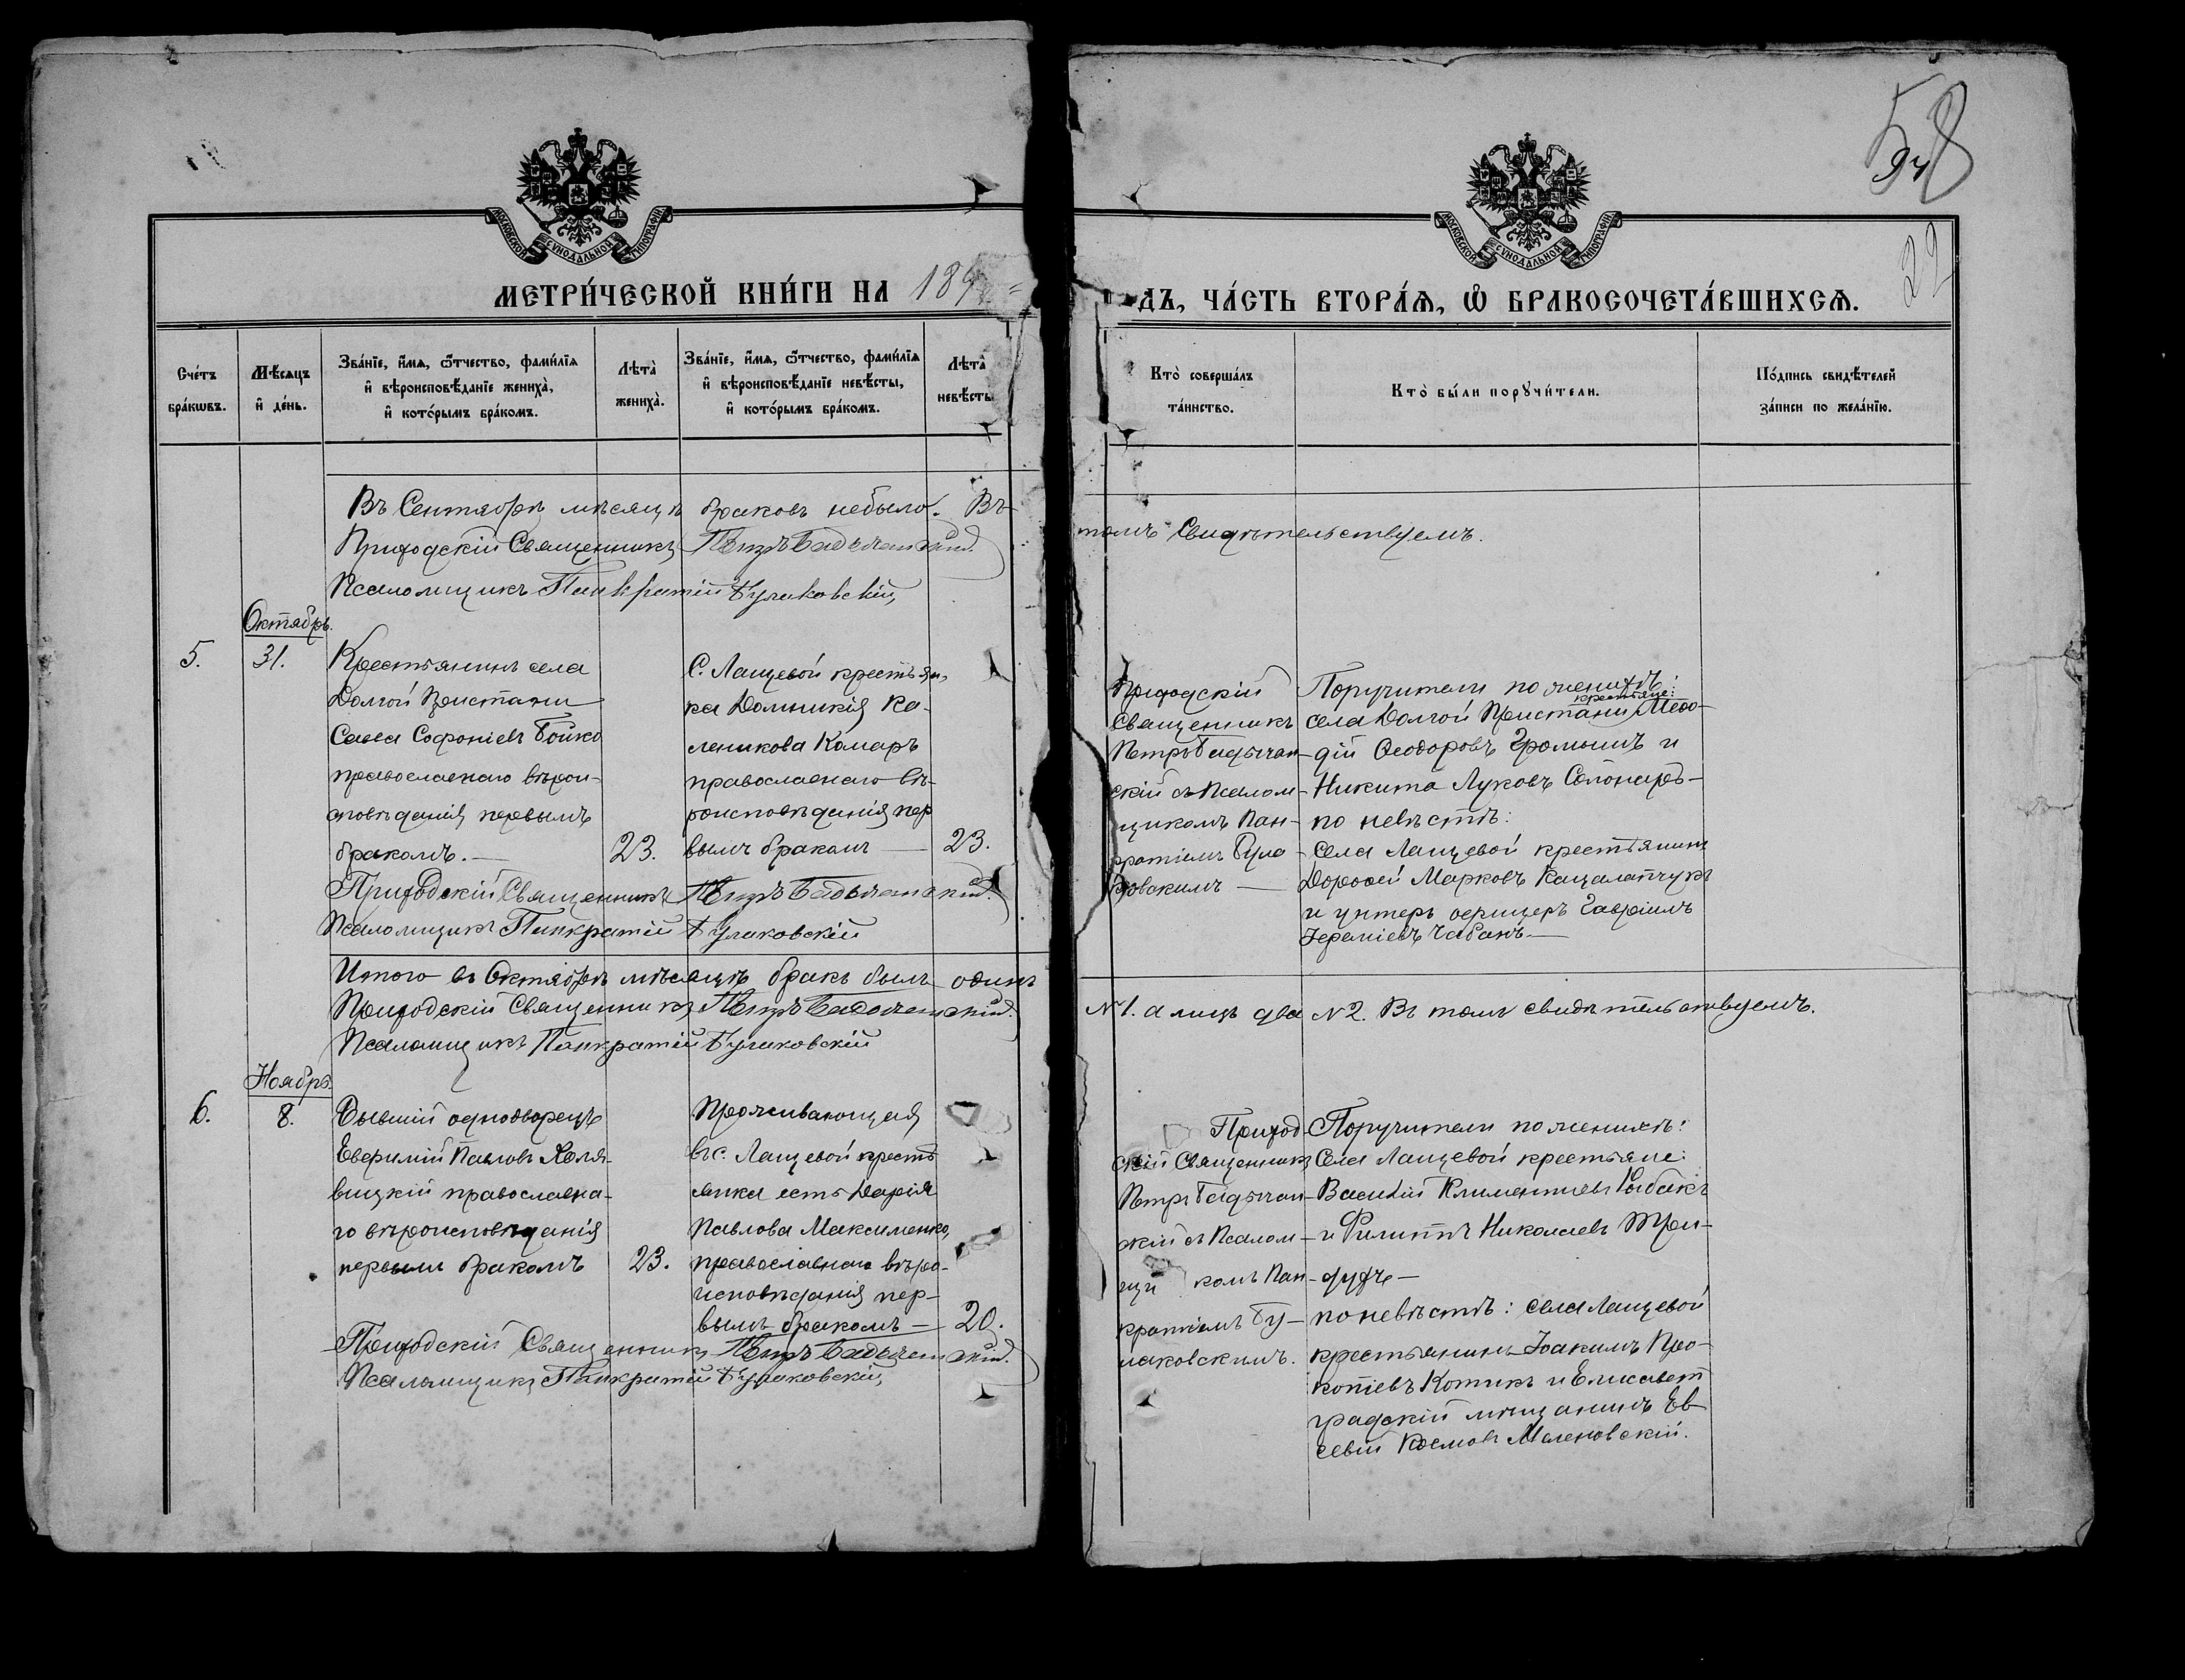 58
94
22
МОСКОВСКОЙ СѴНОДАЛЬНОЙ ТИПОГРАФІИ
МОСКОВСКОЙ СѴНОДАЛЬНОЙ ТИПОГРАФІИ
МЕТРИ́ЧЕСКОЙ КНИ́ГИ НА 189
ДЪ, ЧА́СТЬ ВТОРА́Я, Ѡ БРАКОСОЧЕТА́ВШИХСЯ.
Сче́тъ бра́кѡвъ.
Мѣ́сяцъ и де́нь.
Зва́нїе, и́мя, ѻ҆́тчество, фами́лїя и вѣроисповѣ́данїе жениха̀, и кото́рымъ бра́комъ.
Лѣта̀ жениха̀.
Зва́нїе, и́мя, ѻ҆́тчество, фами́лїя и вѣроисповѣ́данїе невѣ́сты, и кото́рымъ бра́комъ.
Лѣта̀ невѣ́сты
Кто̀ соверша́лъ та́инство.
Кто̀ бы́ли порꙋчи́тели.
По́дпись свидѣ́телей за́писи по жела́нїю.
Въ Сентябрѣ мѣсяцѣ браковъ небыло. Въ томъ свидѣтельствуемъ.
Приходскій Священникъ Петръ Бадычанскій.
Псаломщикъ Панкратій Булаковскій,
Октябрь.
5.
31.
Крестьянинъ села
Долгой Пристани
Савва Софоніевъ Бойко
православнаго вѣрои-
сповѣданія первымъ
бракомъ.—
23.
С. Лащевой крестьян-
ка Домникія Ка-
леникова Комаръ
православнаго вѣ-
роисповѣданія пер
вымъ бракомъ —
23.
Приходскій
Священникъ
Петръ Бадычан-
скій съ Псалом-
щикомъ Пан-
кратіемъ Була-
ковскимъ —
Поручители по женихѣ:
крестьяне:
села Долгой Пристани Меѳо-
дій Ѳеодоровъ Громышъ и
Никита Луковъ Солонарь—
по невѣстѣ:
села Лащевой крестьянинъ
Дороѳей Марковъ Кацалапчукъ
и унтеръ офицеръ Гавріилъ
Іереміевъ Чабанъ—
Приходскій Священникъ Петръ Бадычанскій.
Псаломщикъ Панкратій Булаковскій
Итого въ Октябрѣ мѣсяцѣ бракъ былъ одинъ
№ 1. а лицъ два № 2. Въ томъ свидѣтельствуемъ.
Приходскій Священникъ Петръ Бадычанскій.
Псаломщикъ Панкратій Булаковскій
Ноябрь.
6.
8.
Бывшій однодворецъ
Евфимій Павловъ Коля-
вицкій православна-
го вѣроисповѣданія
первымъ бракомъ
23.
Проживающая
въ с. Лащевой кресть
янка есть Дарія
Павлова Максименко,
православнаго вѣро-
исповѣданія пер-
вымъ бракомъ —
20.
Приход-
скій Священникъ
Петръ Бадычан-
скій съ Псалом-
щи комъ Пан-
кратіемъ Бу-
лаковскимъ.
Поручители по женихѣ:
Села Лащевой крестьяне:
Василій Климентіевъ Рыбакъ
и Филиппъ Николаевъ Три-
дудъ—
по невѣстѣ: села Лащевой
крестьянинъ Іоакимъ Про-
копіевъ Котикъ и Елисавет
градскій мѣщанинъ Ев
севій Космовъ Маленовскій.
Приходскій Священникъ Петръ Бадычанскій.
Псаломщикъ Панкратій Булаковскій,